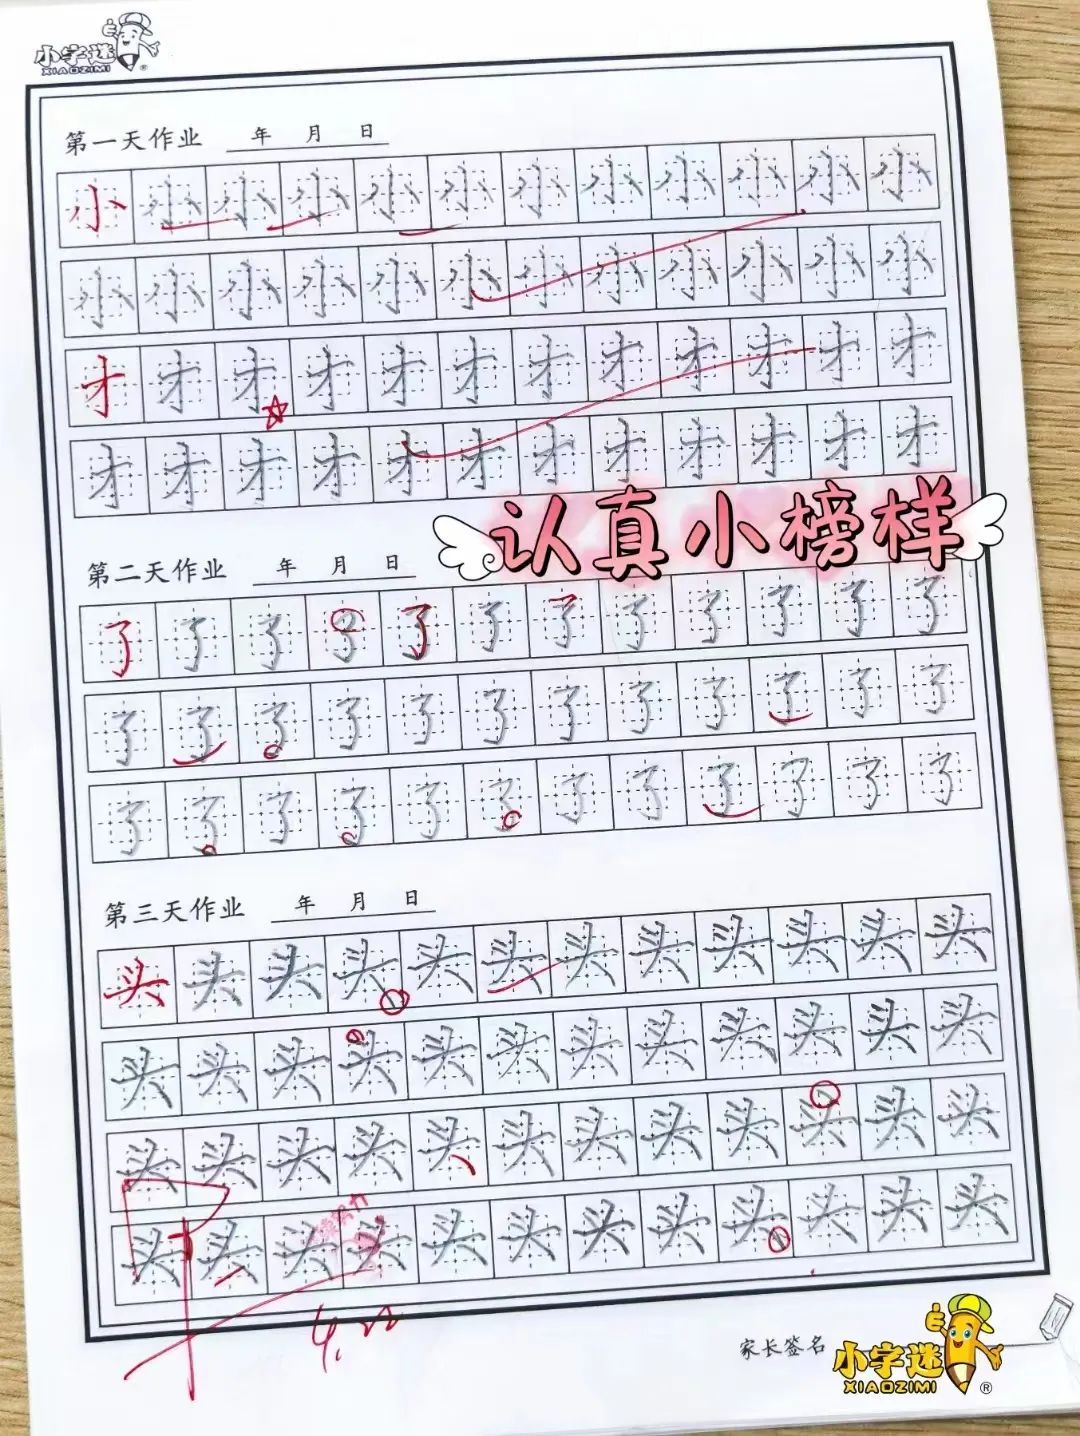 小字迷
XIAOZIMI®
第一天作业 年 月 日
小小小小小小小小小小小小
小小小小小小小小小小小小
才才才才才才才才才才才才
才才才才才才才才才才才才
认真小榜样
第二天作业 年 月 日
了了了了了了了了了了了了
了了了了了了了了了了了了
了了了了了了了了了了了了
第三天作业 年 月 日
头头头头头头头头头头头头
头头头头头头头头头头头头
头头头头头头头头头头头头
头头头头头头头头头头头头
4.22
家长签名
小字迷
XIAOZIMI®